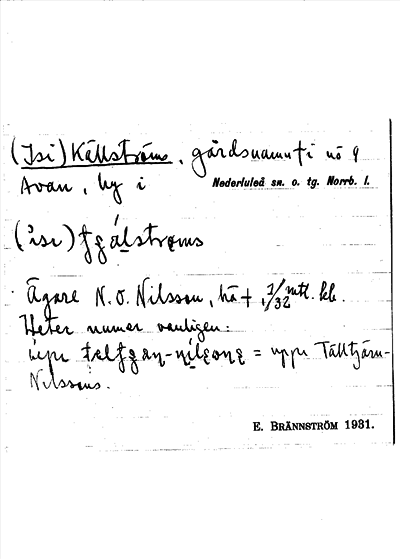 (Isi) Källströms, gårdsnamn i nö 9
Avan, by i Nederluleå sn. o. tg. Norrb. l.
Ägare N. O. Nilsson, 1/32 mtl. kb.
Heter numer vanligen:
= uppe Tälltjärn-
Nilssons.
E. BRÄNNSTRÖM 1931.